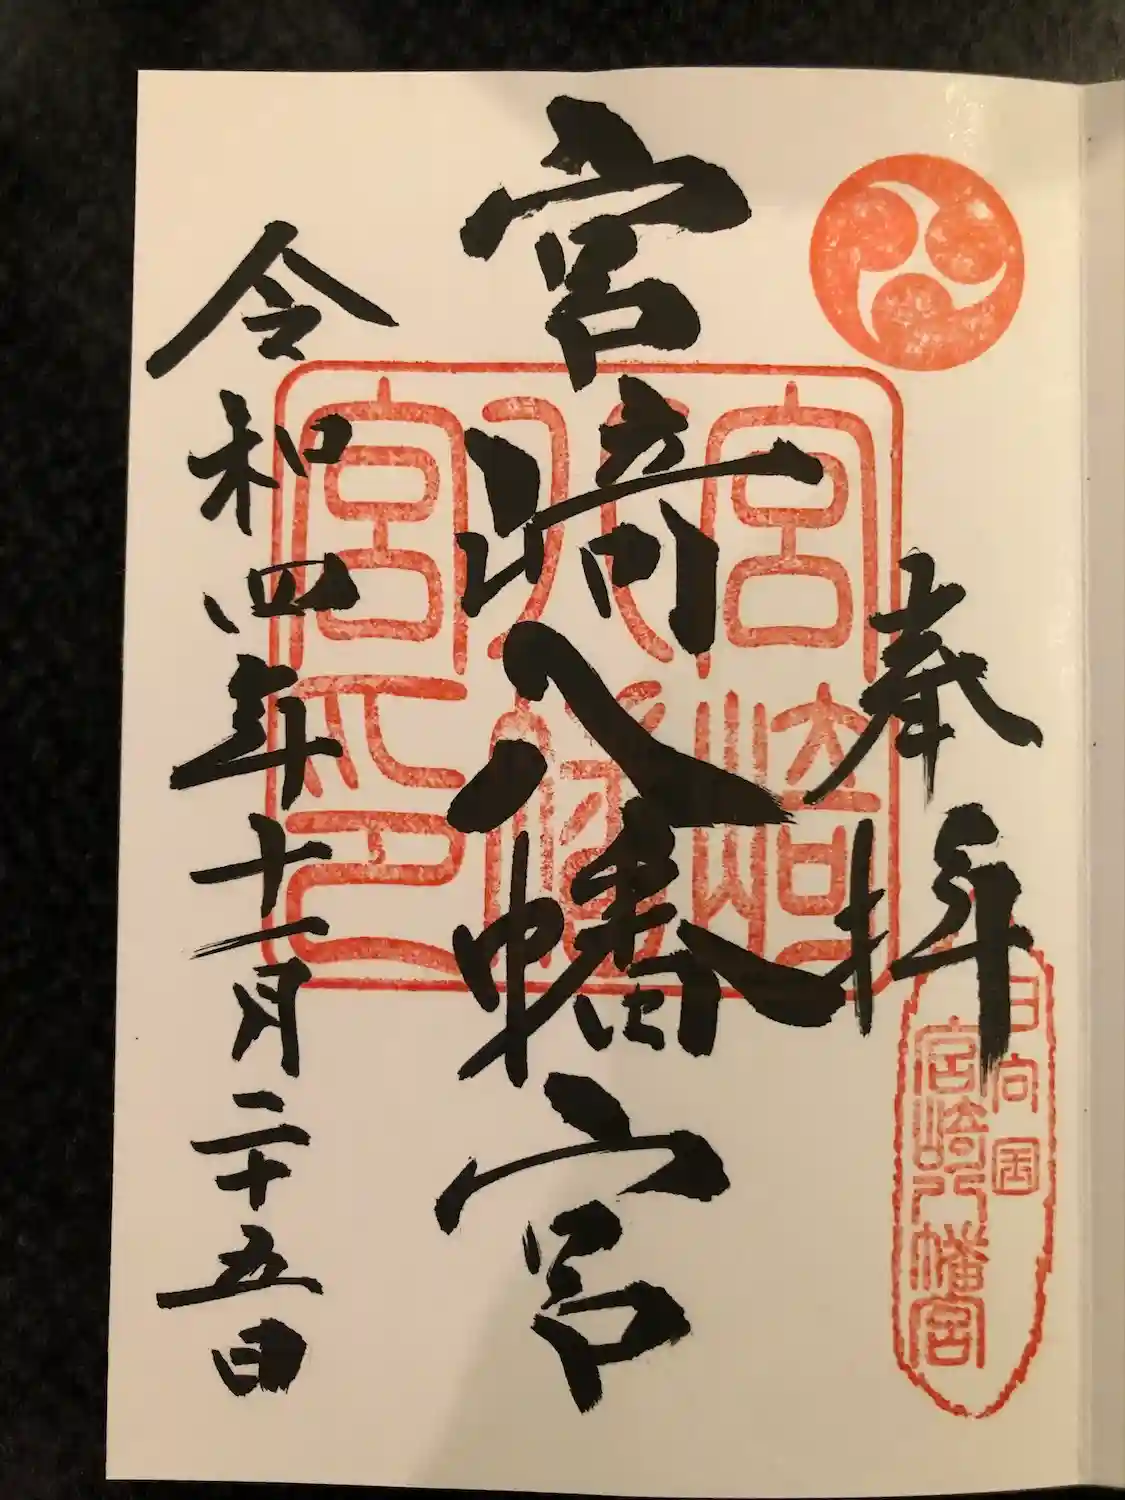 奉拝
日向国
宮崎八幡宮
宮崎八幡宮
宮崎
八幡
宮之印
令和四年十一月二十五日